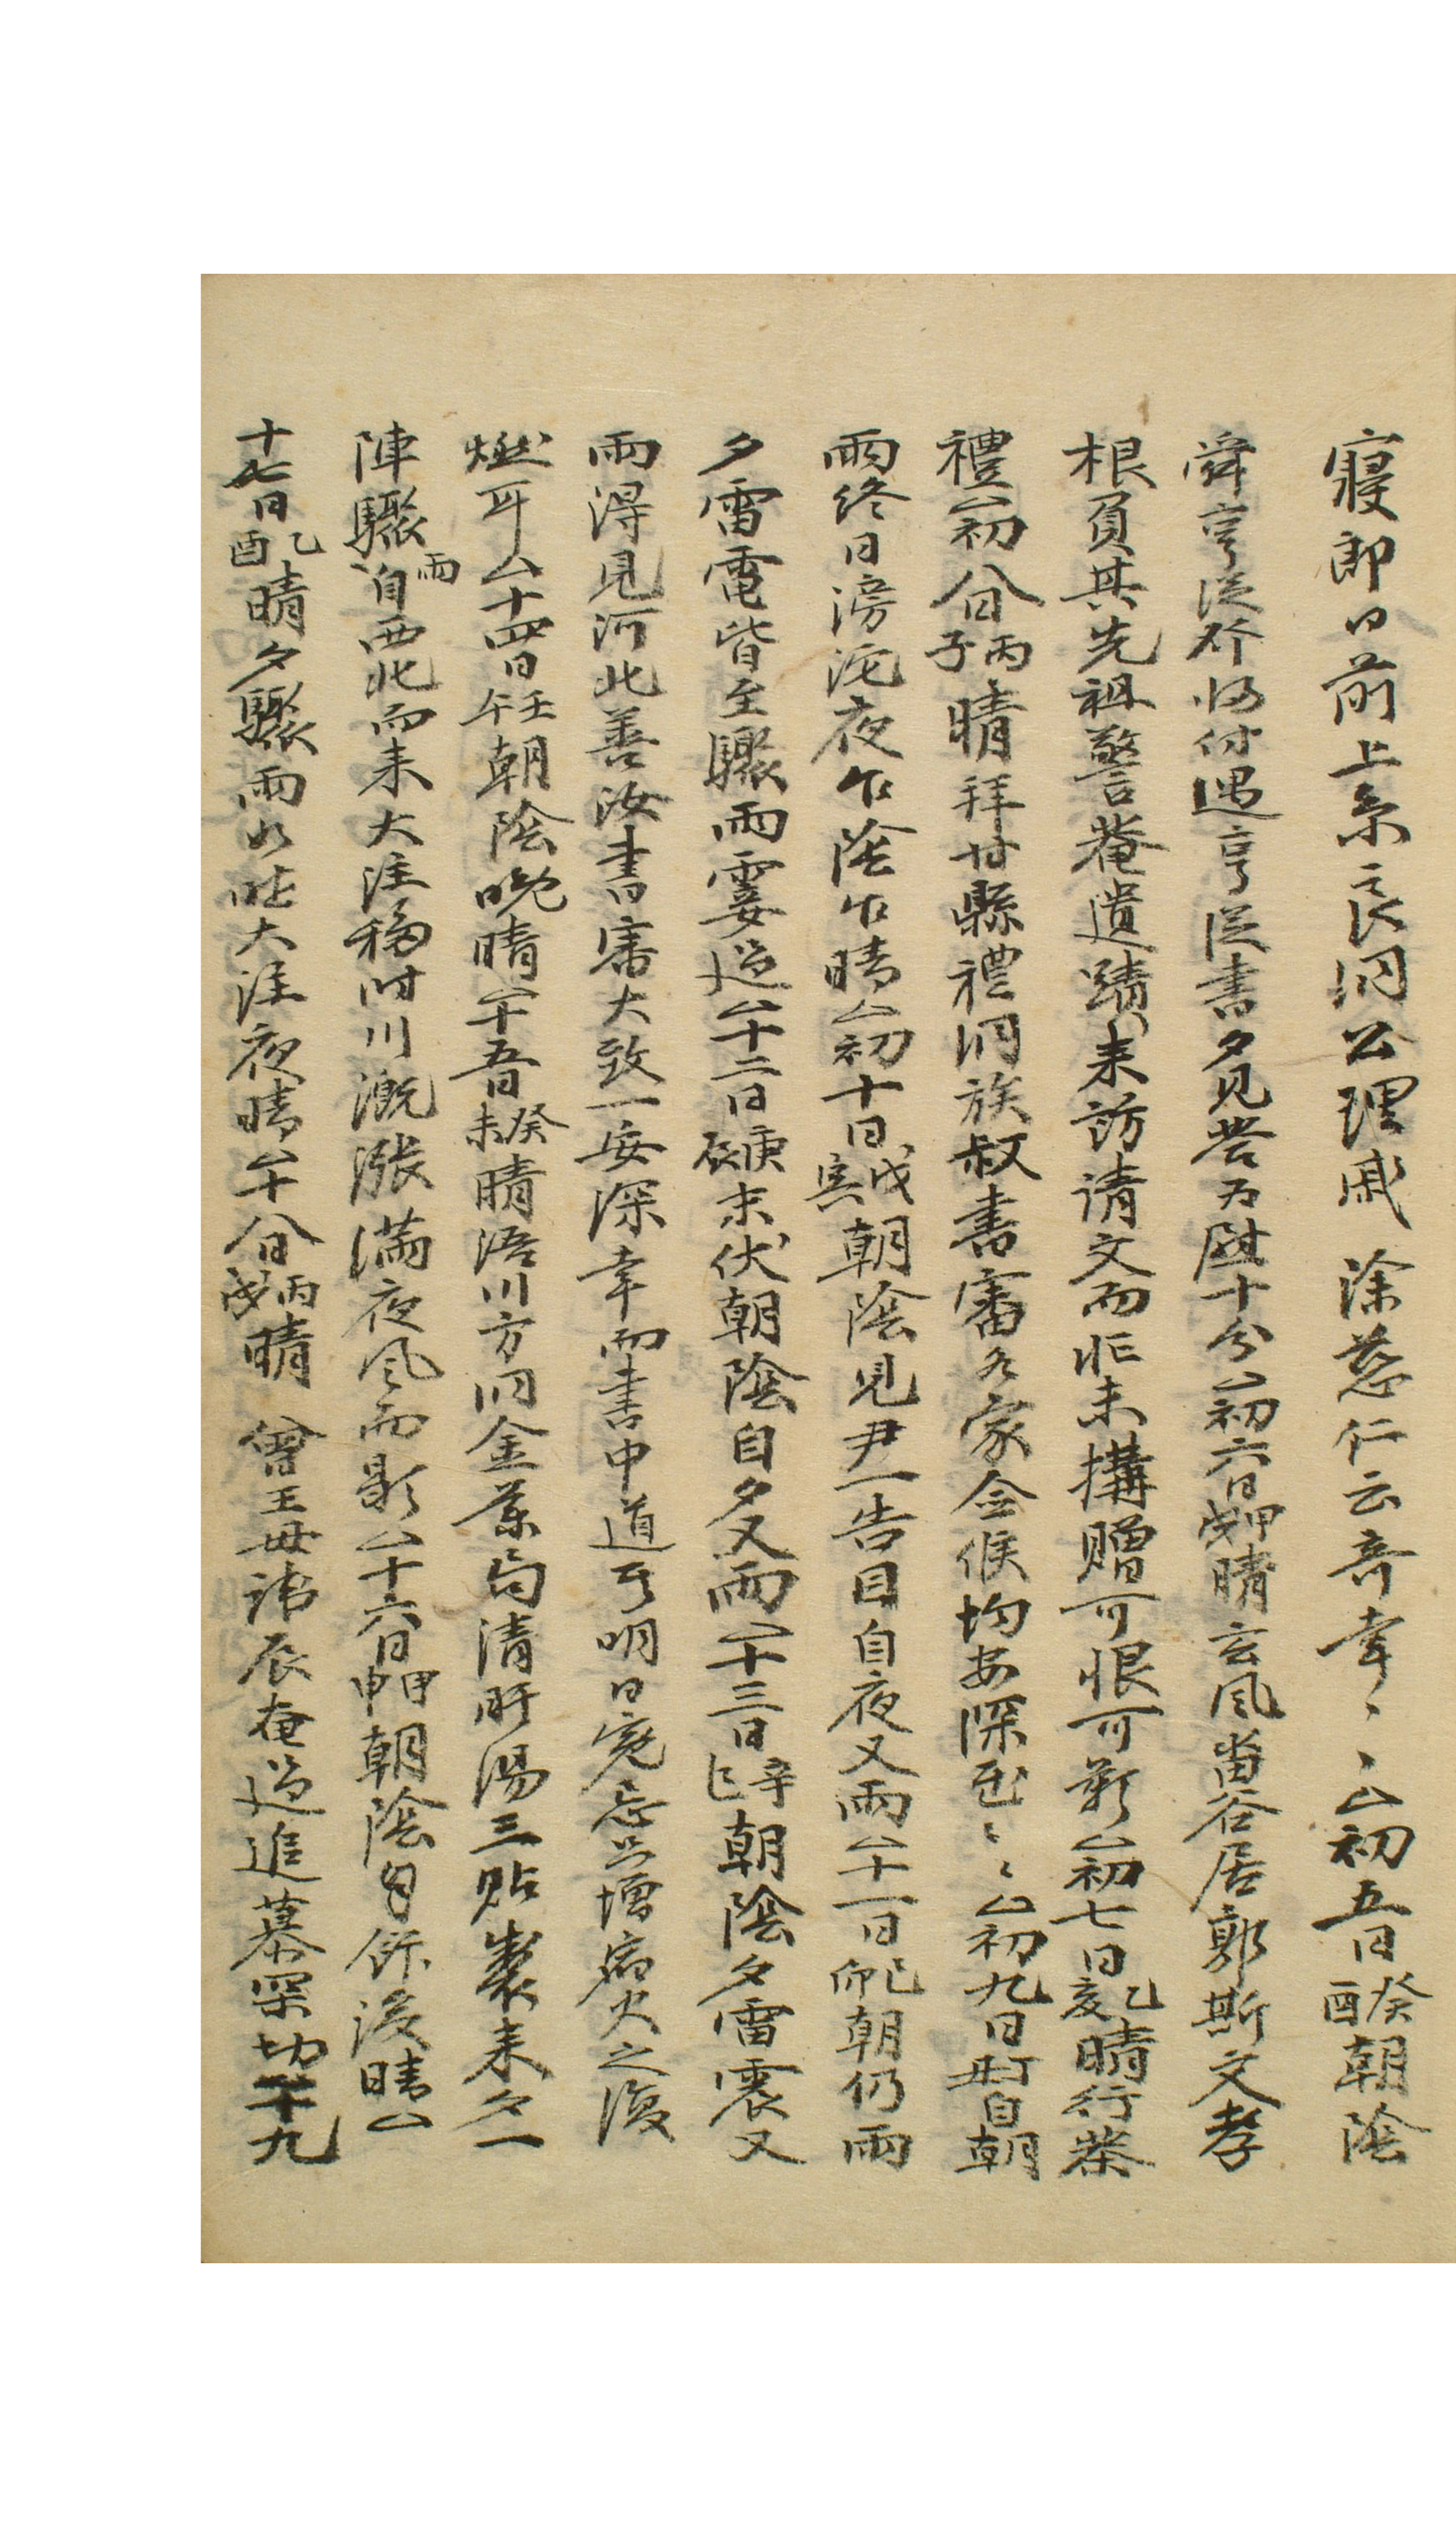 寢郎日前上系良洞公理戚 除慈仁云奇幸〻〻△初五日癸酉朝陰
舜亨從齐𢓜付遇亨從書夕見答為慰十分△初六日甲戌晴玄風畨谷居郭斯文孝
根負其先祖警菴遺蹟來訪請文而怅未搆贈可恨可歎△初七日乙亥晴行茶
禮△初八日丙子晴拜甘縣禮洞族叔書審各家僉候均安深慰〻〻△初九日丁丑自朝
雨終日滂沱夜乍陰乍晴△初十日戊寅朝陰見尹一告目自夜又雨△十一日己卯朝仍雨
夕雷電皆至驟雨霎過△十二日庚辰末伏朝陰自夕又雨△十三日辛巳朝陰夕雷震又
雨得見河北善汝書審大致一安深幸而書中道丐明日寃忘尚增病火之復
燃耳△十四日壬午朝陰晚晴△十五日癸未晴浯川方洞金菉苟清肝湯三貼製來夕一
陣驟雨自西北而來大注移時川漑漲滿夜風而歇△十六日甲申朝陰自餘後晴△
十七日乙酉晴夕驟雨如昨大注夜晴△十八日丙戌晴 曾王母諱辰奄過追慕罙切△十九